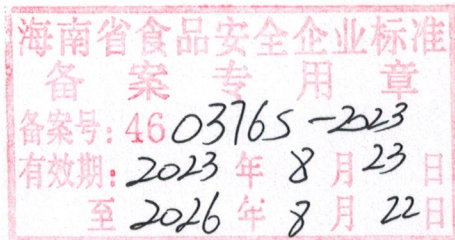 海南省食品安全企业标准
备案专用章
备案号:46 0376S-2023
有效期:2023年8月23日
至2026年8月22日